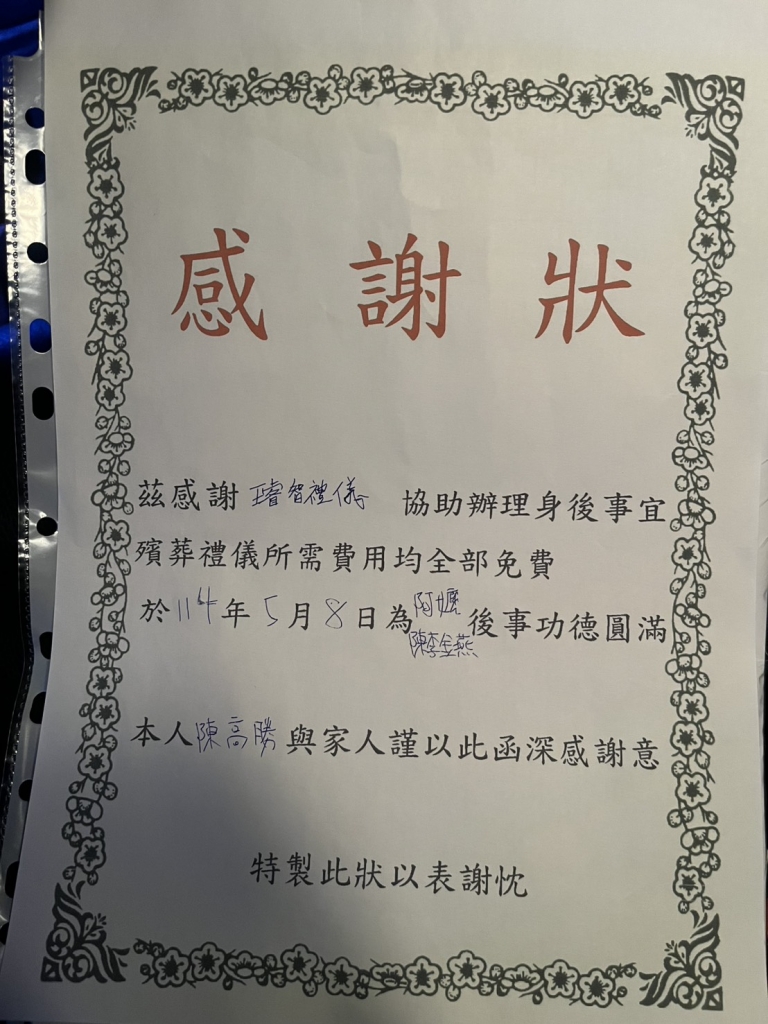 感謝狀
茲感謝 璿智禮儀 協助辦理身後事宜
殯葬禮儀所需費用均全部免費
於114年5月8日為阿嬤陳李金燕後事功德圓滿
本人陳高勝與家人謹以此函深感謝意
特製此狀以表謝忱